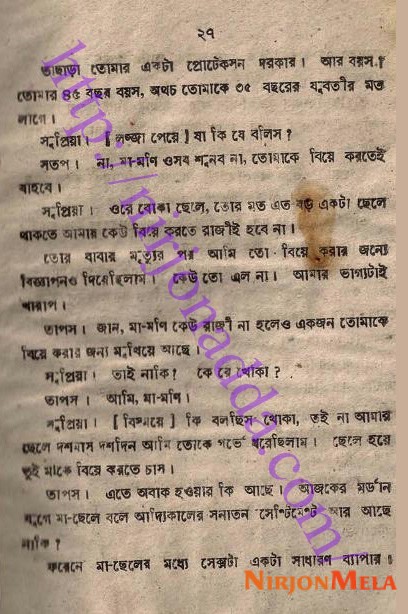 ২৭
তাছাড়া তোমার একটা প্রোটেকসন দরকার। আর বয়স!
তোমার ৪৫ বছর বয়স, অথচ তোমাকে ৩৫ বছরের যুবতীর মত
লাগে।
সুপ্রিয়া। [ লজ্জা পেয়ে ] যা কি যে বলিস?
না, মা-মণি ওসব শুনব না, তোমাকে বিয়ে করতেই
সুপ্রিয়া। ওরে বোকা ছেলে, তোর মত এত বড় একটা ছেলে
থাকতে আমার কেউ বিয়ে করতে রাজীই হবে না।
তোর বাবার মৃত্যুর পর আমি তো বিয়ে করার জন্যে
বিজ্ঞাপনও দিয়েছিলাম। কেউ তো এল না। আমার ভাগ্যটাই
খারাপ।
তাপস। জান, মা-মণি কেউ রাজী না হলেও একজন তোমাকে
বিয়ে করার জন্য মুখিয়ে আছে।
সুপ্রিয়া। তাই নাকি? কে রে খোকা?
তাপস। আমি, মা-মণি।
সুপ্রিয়া। [ বিস্ময়ে ] কি বলছিস খোকা, তুই না আমার
ছেলে দশমাস দশদিন আমি তোকে গর্ভে ধরেছিলাম। ছেলে হয়ে
তুই মাকে বিয়ে করতে চাস।
তাপস। এতে অবাক হওয়ার কি আছে। আজকের মর্ডান
যুগে মা-ছেলে বলে আদ্যিকালের সনাতন সেন্টিমেন্ট আর আছে
নাকি?
ফরেনে মা-ছেলের মধ্যে সেক্সটা একটা সাধারণ ব্যাপার।
http://nirjonadda.com
NIRJONMELA